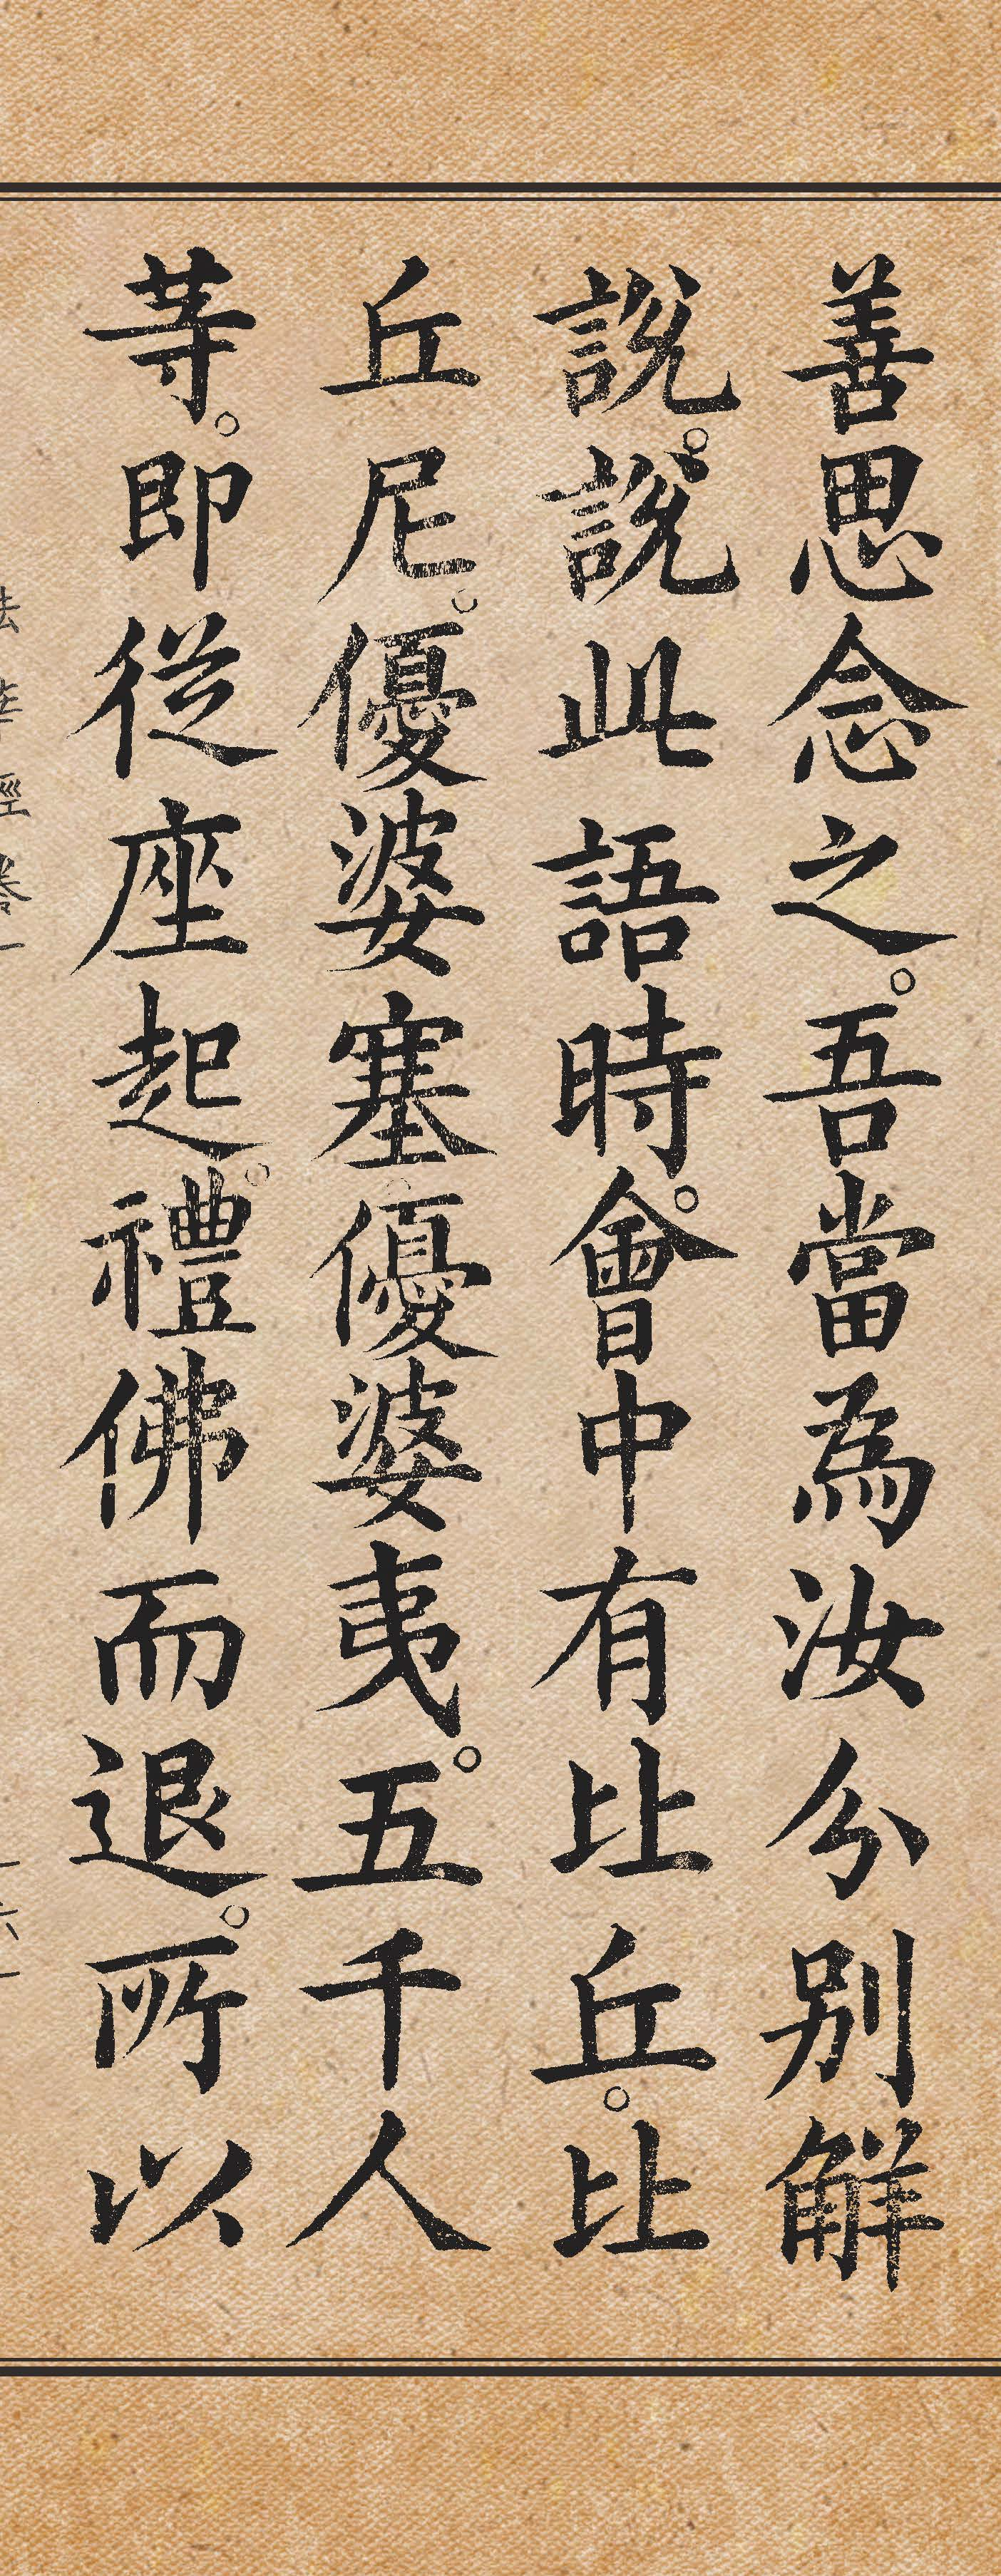 善思念之。吾當為汝分別解
說。說此語時。會中有比丘。比
丘尼。優婆塞。優婆夷。五千人
等。即從座起。禮佛而退。所以
法華經卷一